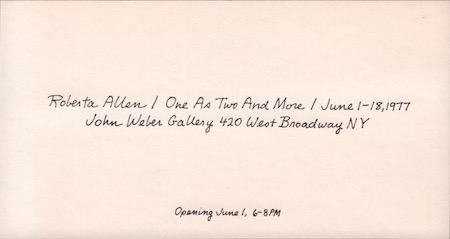 Roberta Allen / One As Two And More / June 1-18, 1977
John Weber Gallery 420 West Broadway NY
Opening June 1, 6-8PM